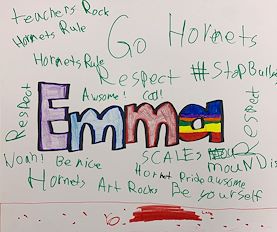 teachers Rock
Hornets Rule
Go Hornets
Hornets Rule
Respect
#StopBully
Awsome! Cool!
Respect
Emma
Respect
Woah! Be nice
SCALES
mouNDis
Hornet Pride awsome
Hornets Art Rocks Be yourself